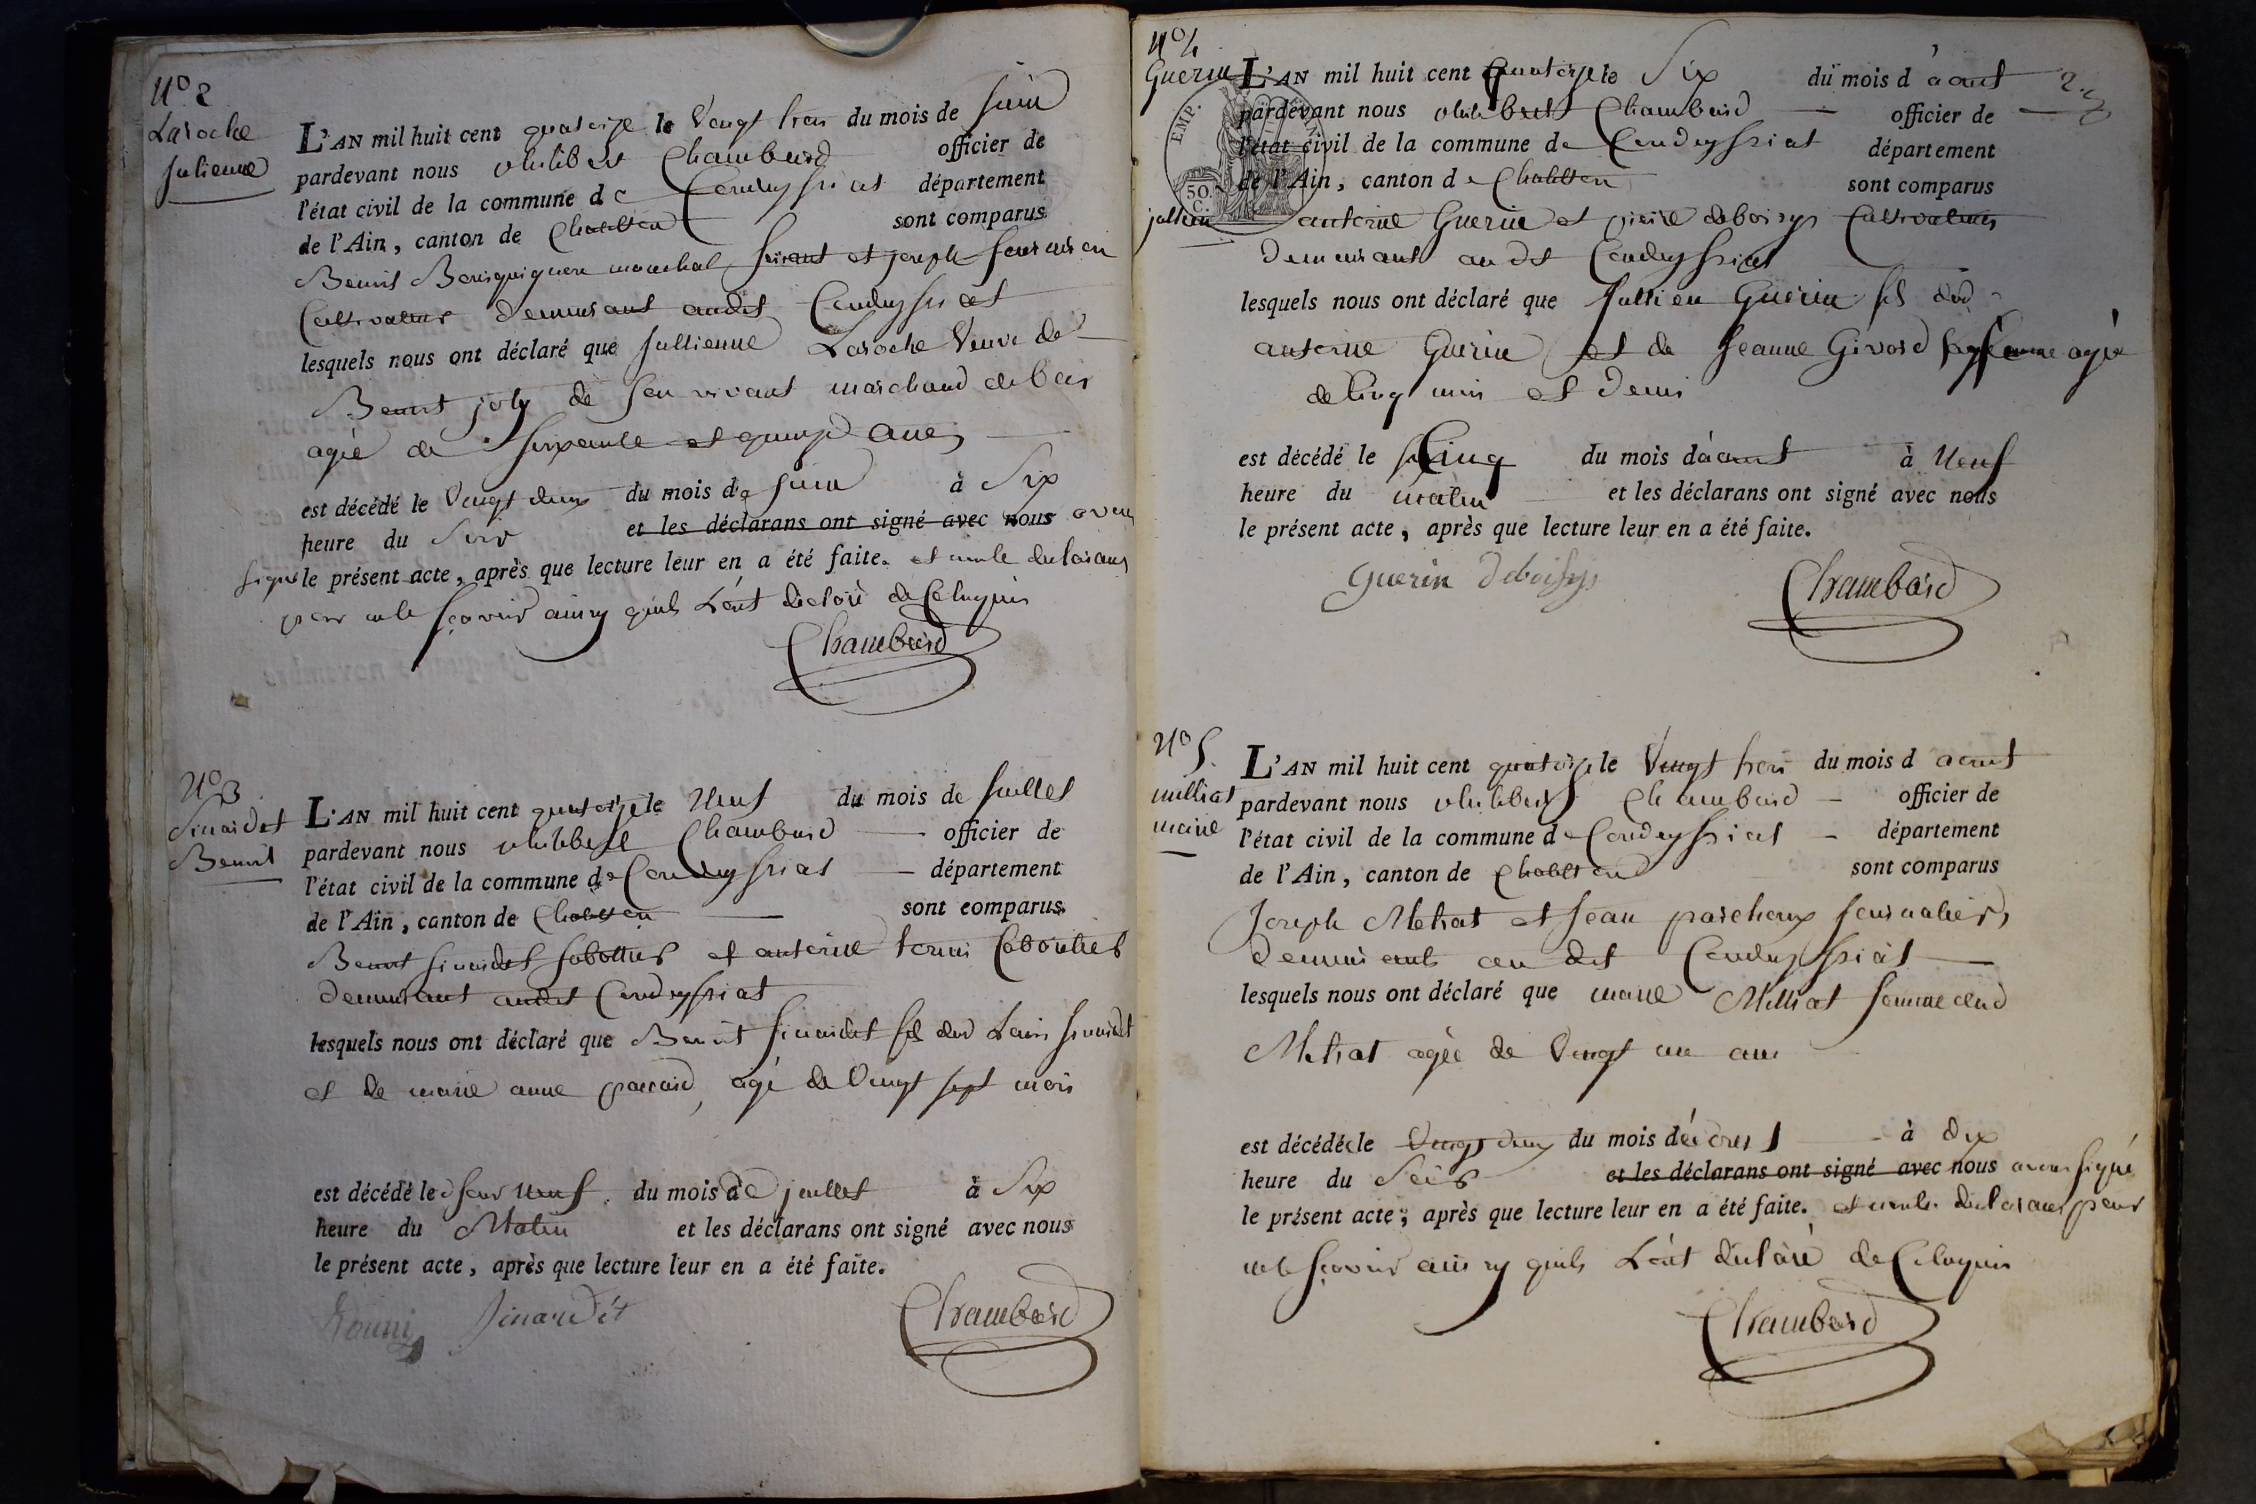 N.o 2
Laroche
Julienne
L'AN mil huit cent quatorze le Vengt trois du mois de Juin
pardevant nous philibert Chambard officier de
l'état civil de la commune de Condeyssiat département
de l'Ain, canton de Chatillon sont comparus
Benoit marechal ferrant et joseph
Cultivateurs demeurant audit Condeyssiat
lesquels nous ont déclaré que Jullienne Laroche Veuve de
Benoit joly de son vivant marchand de bois
agée de soixante et quinze ans
est décédé le Vengt deux du mois de juin à Six
heure du Soir et les déclarans ont signé avec nous avons
signé le présent acte, après que lecture leur en a été faite. et non les declarans
pour ne le sçavoir ainsy quils L'ont déclaré de Ce Enquis
Chambard
N.o 3
Sinardet
Benoit
L'AN mil huit cent quatorze le Neuf du mois de Juillet
pardevant nous philibert Chambard officier de
l'état civil de la commune de Condeyssiat département
de l'Ain, canton de Chatillon sont comparus
Benoit sinardet sabottier et antoine
demeurant audit Condeyssiat
lesquels nous ont déclaré que Benoit sinardet fils dud Louis sinardet
et de marie anne pacard, agé de Vengt sept mois
est décédé le Jour Neuf du mois de juillet à Six
heure du Matin et les déclarans ont signé avec nous
le présent acte, après que lecture leur en a été faite.
Sinardét
Chambard
N.o 4
Guerin
jullien
EMP.
50.
C.
L'AN mil huit cent quatorze le Six du mois d'aout
pardevant nous philibert Chambard officier de
l'état civil de la commune de Condeyssiat département
de l'Ain, canton de Chatillon sont comparus
antoine Guerin et pierre deboissys Cultivateurs
demeurant audit Condeyssiat
lesquels nous ont déclaré que Jullien Guerin fils dud
antoine Guerin et de Jeanne Givord sa femme agé
de Cinq mois et demi
est décédé le Cinq du mois d'aout à Neuf
heure du matin et les déclarans ont signé avec nous
le présent acte, après que lecture leur en a été faite.
Guerin deboissys
Chambard
N.o 5.
milliat
marie
L'AN mil huit cent quatorze le Vengt trois du mois d aout
pardevant nous philibert Chambard officier de
l'état civil de la commune de Condeyssiat département
de l'Ain, canton de Chatillon sont comparus
Joseph Metrat et Jean parcheux Journaliers
demeurants audit Condeyssiat
lesquels nous ont déclaré que marie Milliat femme dud
Metrat agée de Vengt un ans
est décédée le Vengt deux du mois d'aoust à dix
heure du Soir et les déclarans ont signé avec nous avons signé
le présent acte, après que lecture leur en a été faite. et non les declarans pour
ne le sçavoir ainsy quils L'ont déclaré de Ce Enquis
Chambard